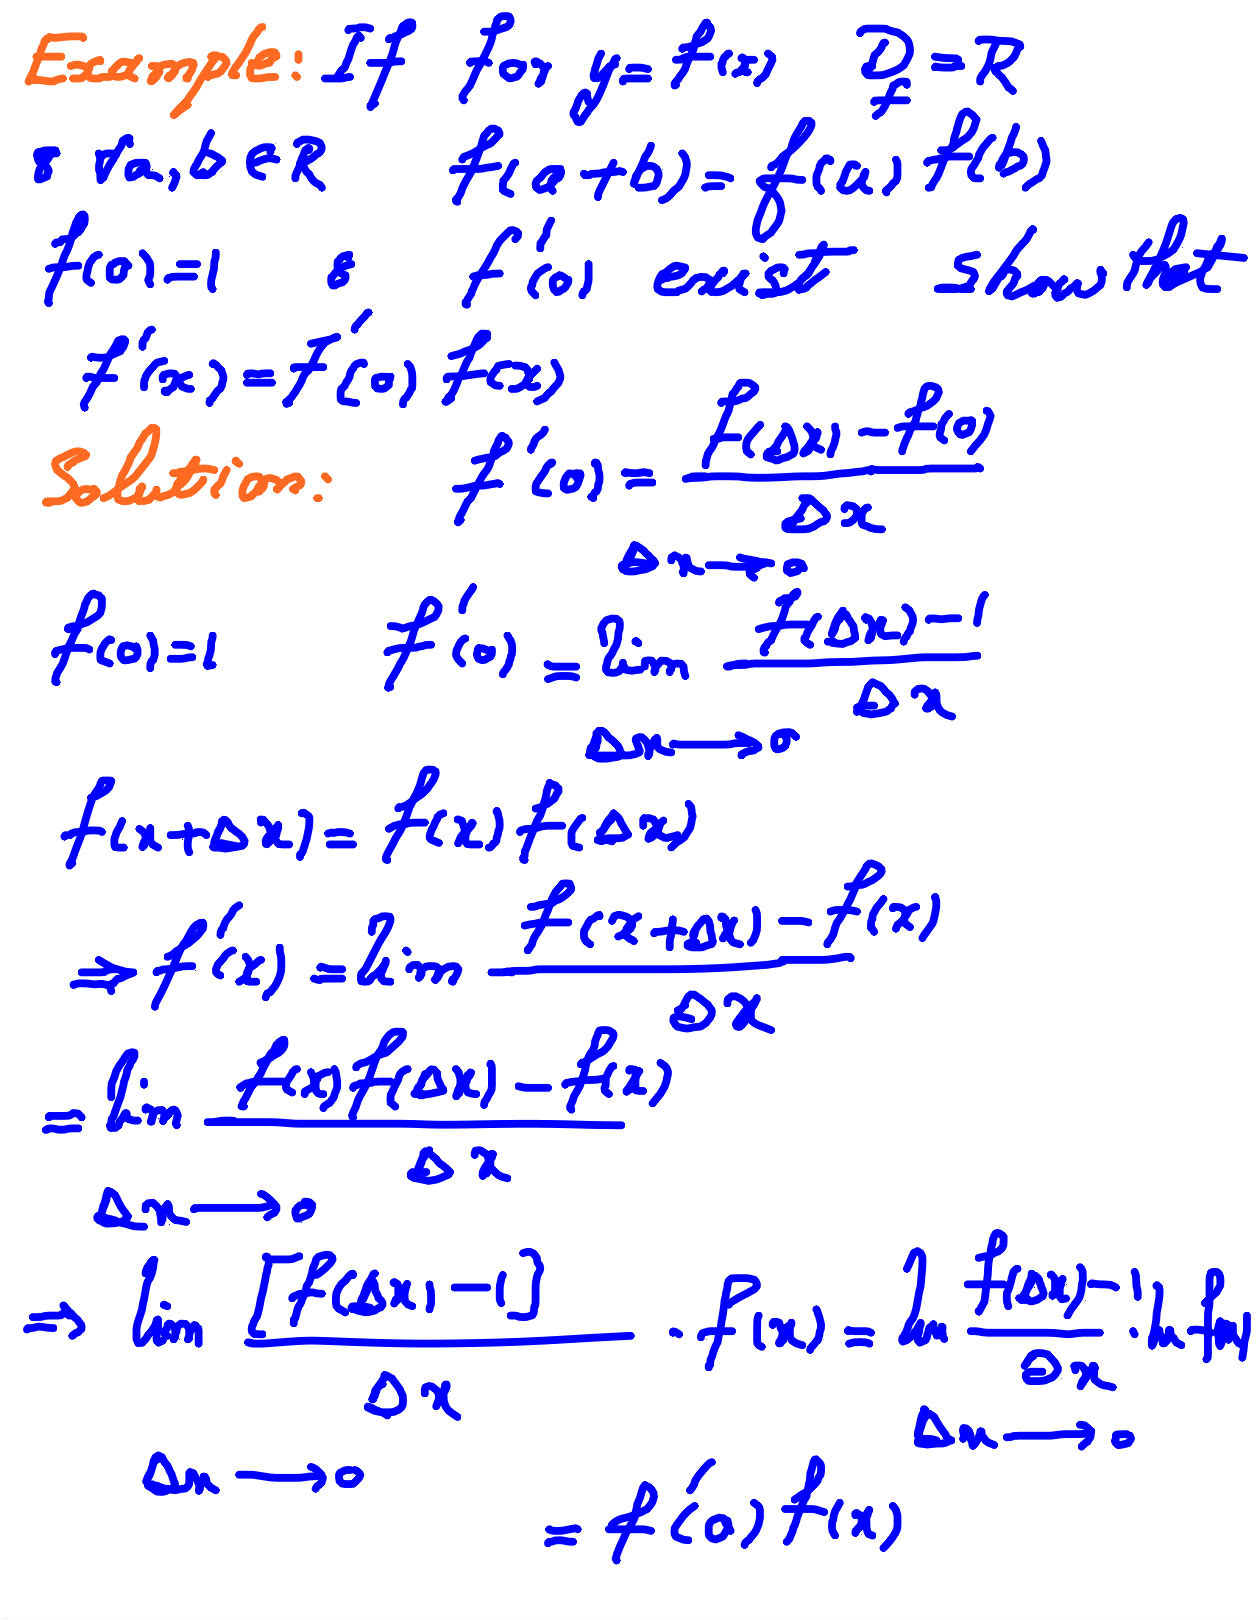 Example: If for y=f(x) D_f=R
& ∀a,b∈R f(a+b)=f(a)f(b)
f(0)=1 & f'(0) exist show that
f'(x)=f'(0)f(x)
Solution: f'(0)=\frac{f(Δx)-f(0)}{Δx}
Δx→0
f(0)=1 f'(0)=lim \frac{f(Δx)-1}{Δx}
Δx→0
f(x+Δx)=f(x)f(Δx)
⇒f'(x)=lim \frac{f(x+Δx)-f(x)}{Δx}
=lim \frac{f(x)f(Δx)-f(x)}{Δx}
Δx→0
⇒ lim \frac{[f(Δx)-1]}{Δx} · f(x)=lim \frac{f(Δx)-1}{Δx} · lim f(x)
Δx→0 Δx→0
=f'(0)f(x)